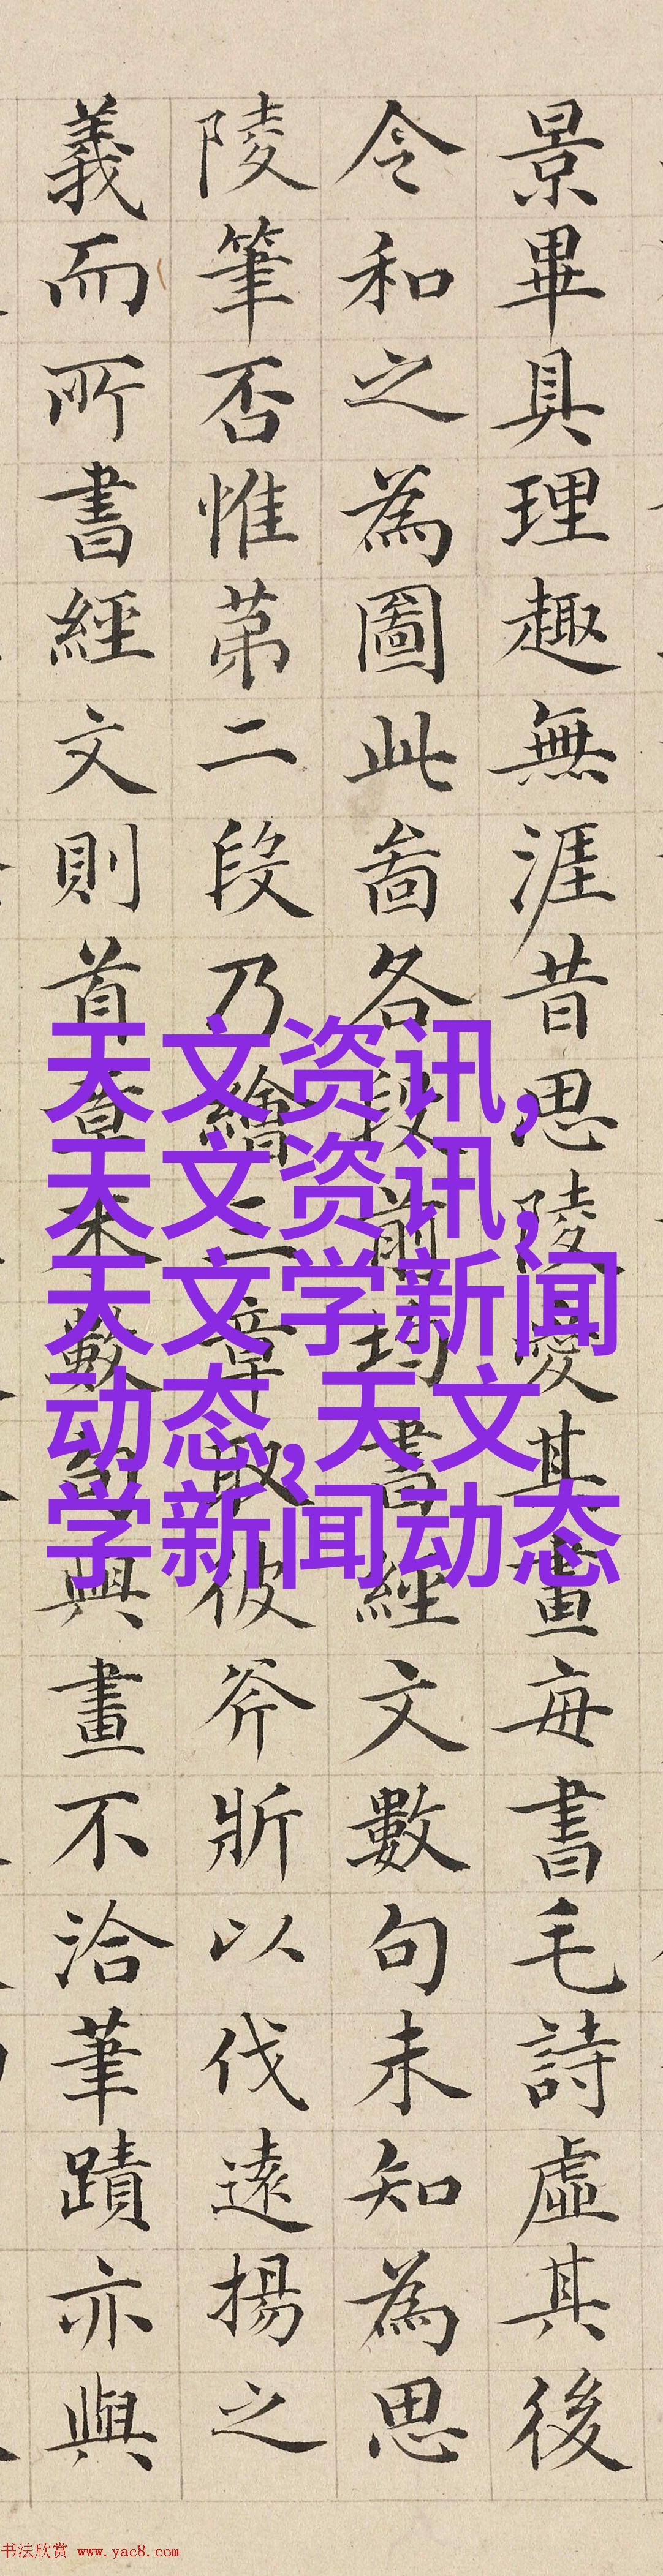 景畢具理趣無涯昔思陵愛其畫每書毛詩虛其後
令和之為圖此啚各段前均書經文數句未知為思
陵筆否惟苐二段乃繪三章取彼斧斨以伐遠揚之
義而所書經文則首章末數句與畫不洽筆蹟亦與
天文资讯,
天文资讯,
天文学新闻
动态,天文
学新闻动态
书法欣赏 www.yac8.com